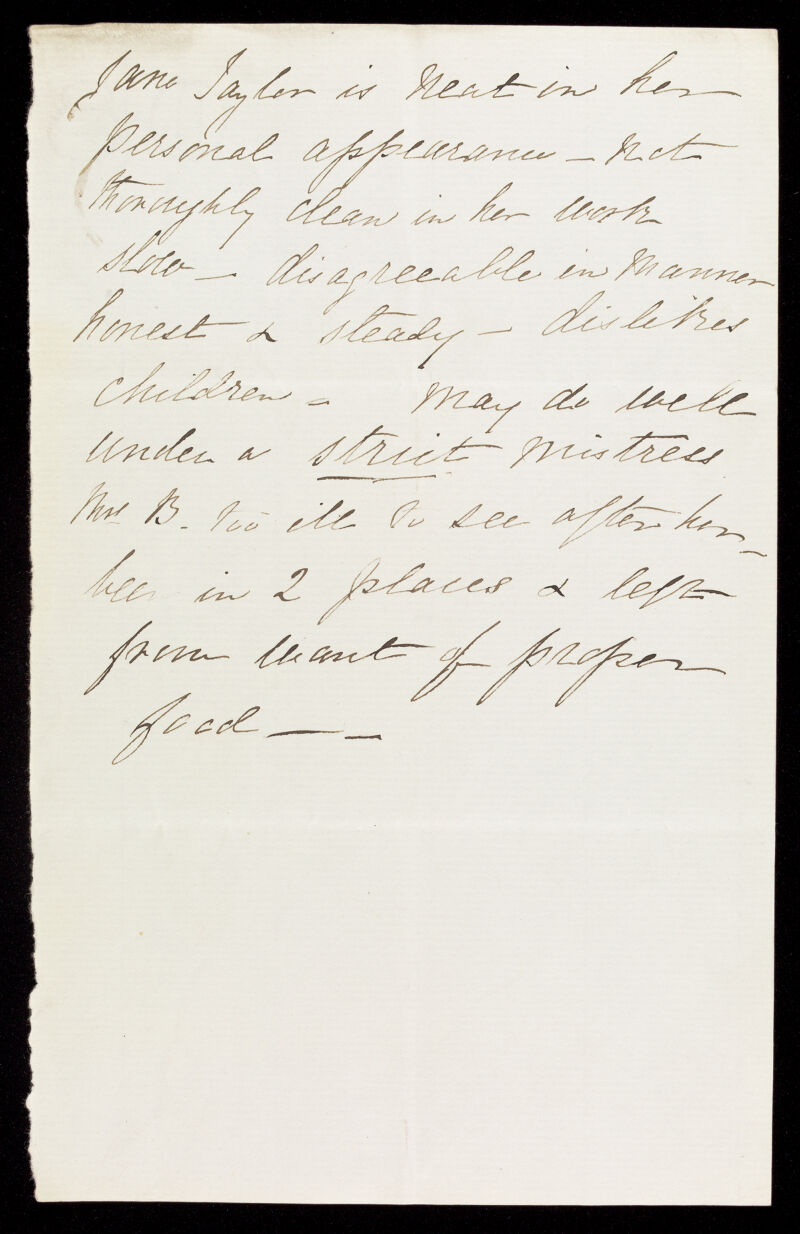 Jane Taylor is neat in her
personal appearance – not
thoroughly clean in her work
slow – disagreeable in manner
honest & steady – dislikes
children – may do well
under a strict mistress
Mrs B. too ill to see after her –
been in 2 places & left
from want of proper
food — –